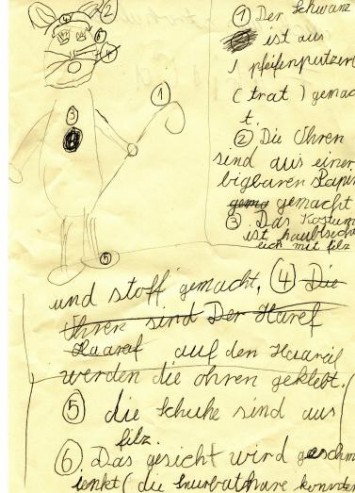 ① Der Schwanz
ist aus
pfeifenputzern
(trat) gemac
t.
② Die Ohren
sind aus einer
bigbaren Papier
gemacht
③ Das Kostüm
ist haubtsäch
lich mit filz
und stoff gemacht, ④ Die
Ohren sind Der Haaref
Haaref auf den Haareif
werden die ohren geklebt.
⑤ die schuhe sind aus
filz.
⑥ Das gesicht wird geschm
inkt (die
④
②
⑥
③
①
⑤